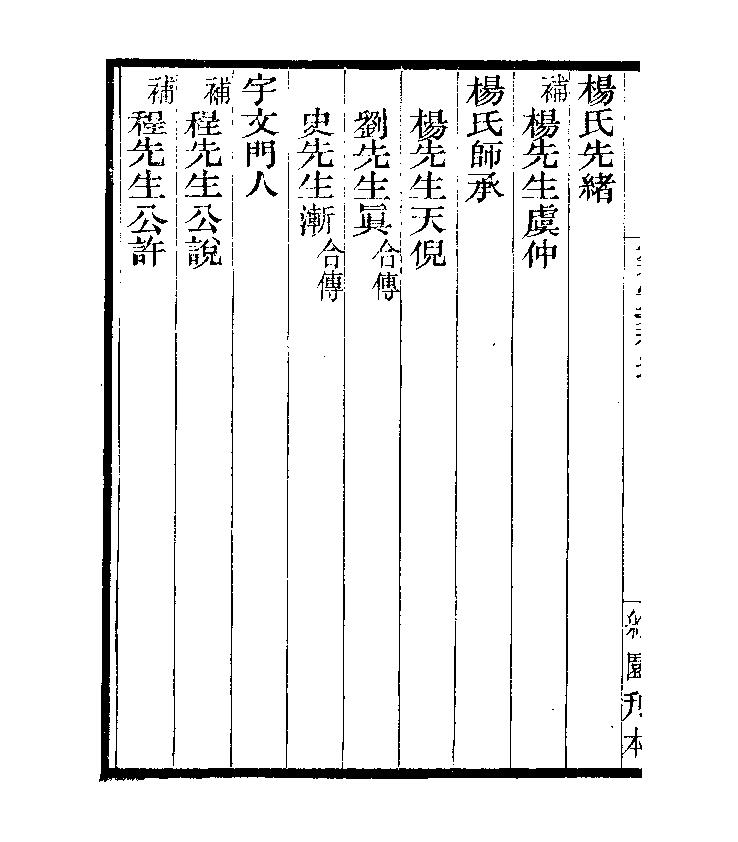 楊氏先緒
補楊先生虞仲
楊氏師承
楊先生天倪
劉先生眞合傳
史先生漸合傳
宇文門人
補程先生公說
補程先生公許
園刋本